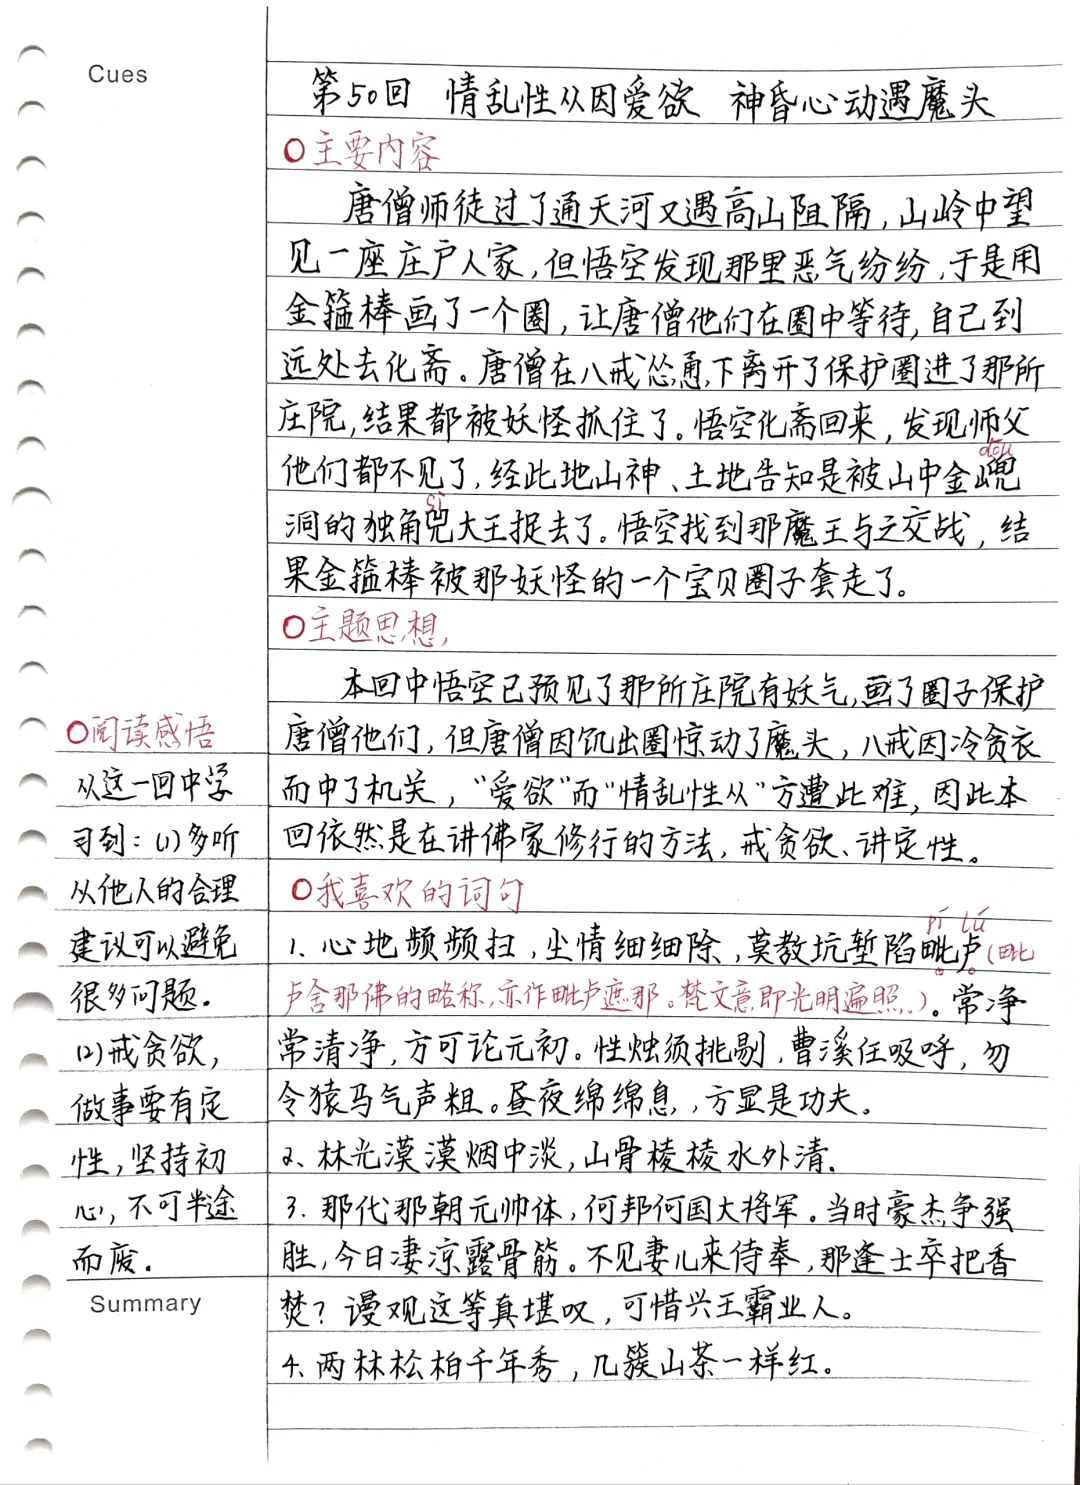 Cues
第50回 情乱性从因爱欲 神昏心动遇魔头
○主要内容
唐僧师徒过了通天河又遇高山阻隔,山岭中望
见一座庄户人家,但悟空发现那里恶气纷纷,于是用
金箍棒画了一个圈,让唐僧他们在圈中等待,自己到
远处去化斋。唐僧在八戒怂恿下离开了保护圈进了那所
庄院,结果都被妖怪抓住了。悟空化斋回来,发现师父
dōu
他们都不见了,经此地山神、土地告知是被山中金𡷗
sì
洞的独角兕大王捉去了。悟空找到那魔王与之交战,结
果金箍棒被那妖怪的一个宝贝圈子套走了。
○主题思想,
本回中悟空已预见了那所庄院有妖气,画了圈子保护
唐僧他们,但唐僧因饥出圈惊动了魔头,八戒因冷贪衣
而中了机关,“爱欲”而“情乱性从”方遭此难,因此本
回依然是在讲佛家修行的方法,戒贪欲、讲定性。
○我喜欢的词句
pí lú
1. 心地频频扫,尘情细细除,莫教坑堑陷毗卢(毗
卢舍那佛的略称,亦作毗卢遮那。梵文意即光明遍照。)。常净
常清净,方可论元初。性烛须挑剔,曹溪任吸呼,勿
令猿马气声粗。昼夜绵绵息,,方显是功夫。
2、林光漠漠烟中淡,山骨棱棱水外清.
3. 那代那朝元帅体,何邦何国大将军。当时豪杰争强
胜,今日凄凉露骨筋。不见妻儿来侍奉,那逢士卒把香
焚?谩观这等真堪叹,可惜兴王霸业人。
4. 两林松柏千年秀,几簇山茶一样红。
○阅读感悟
从这一回中学
习到:(1)多听
从他人的合理
建议可以避免
很多问题.
(2)戒贪欲,
做事要有定
性,坚持初
心,不可半途
而废.
Summary